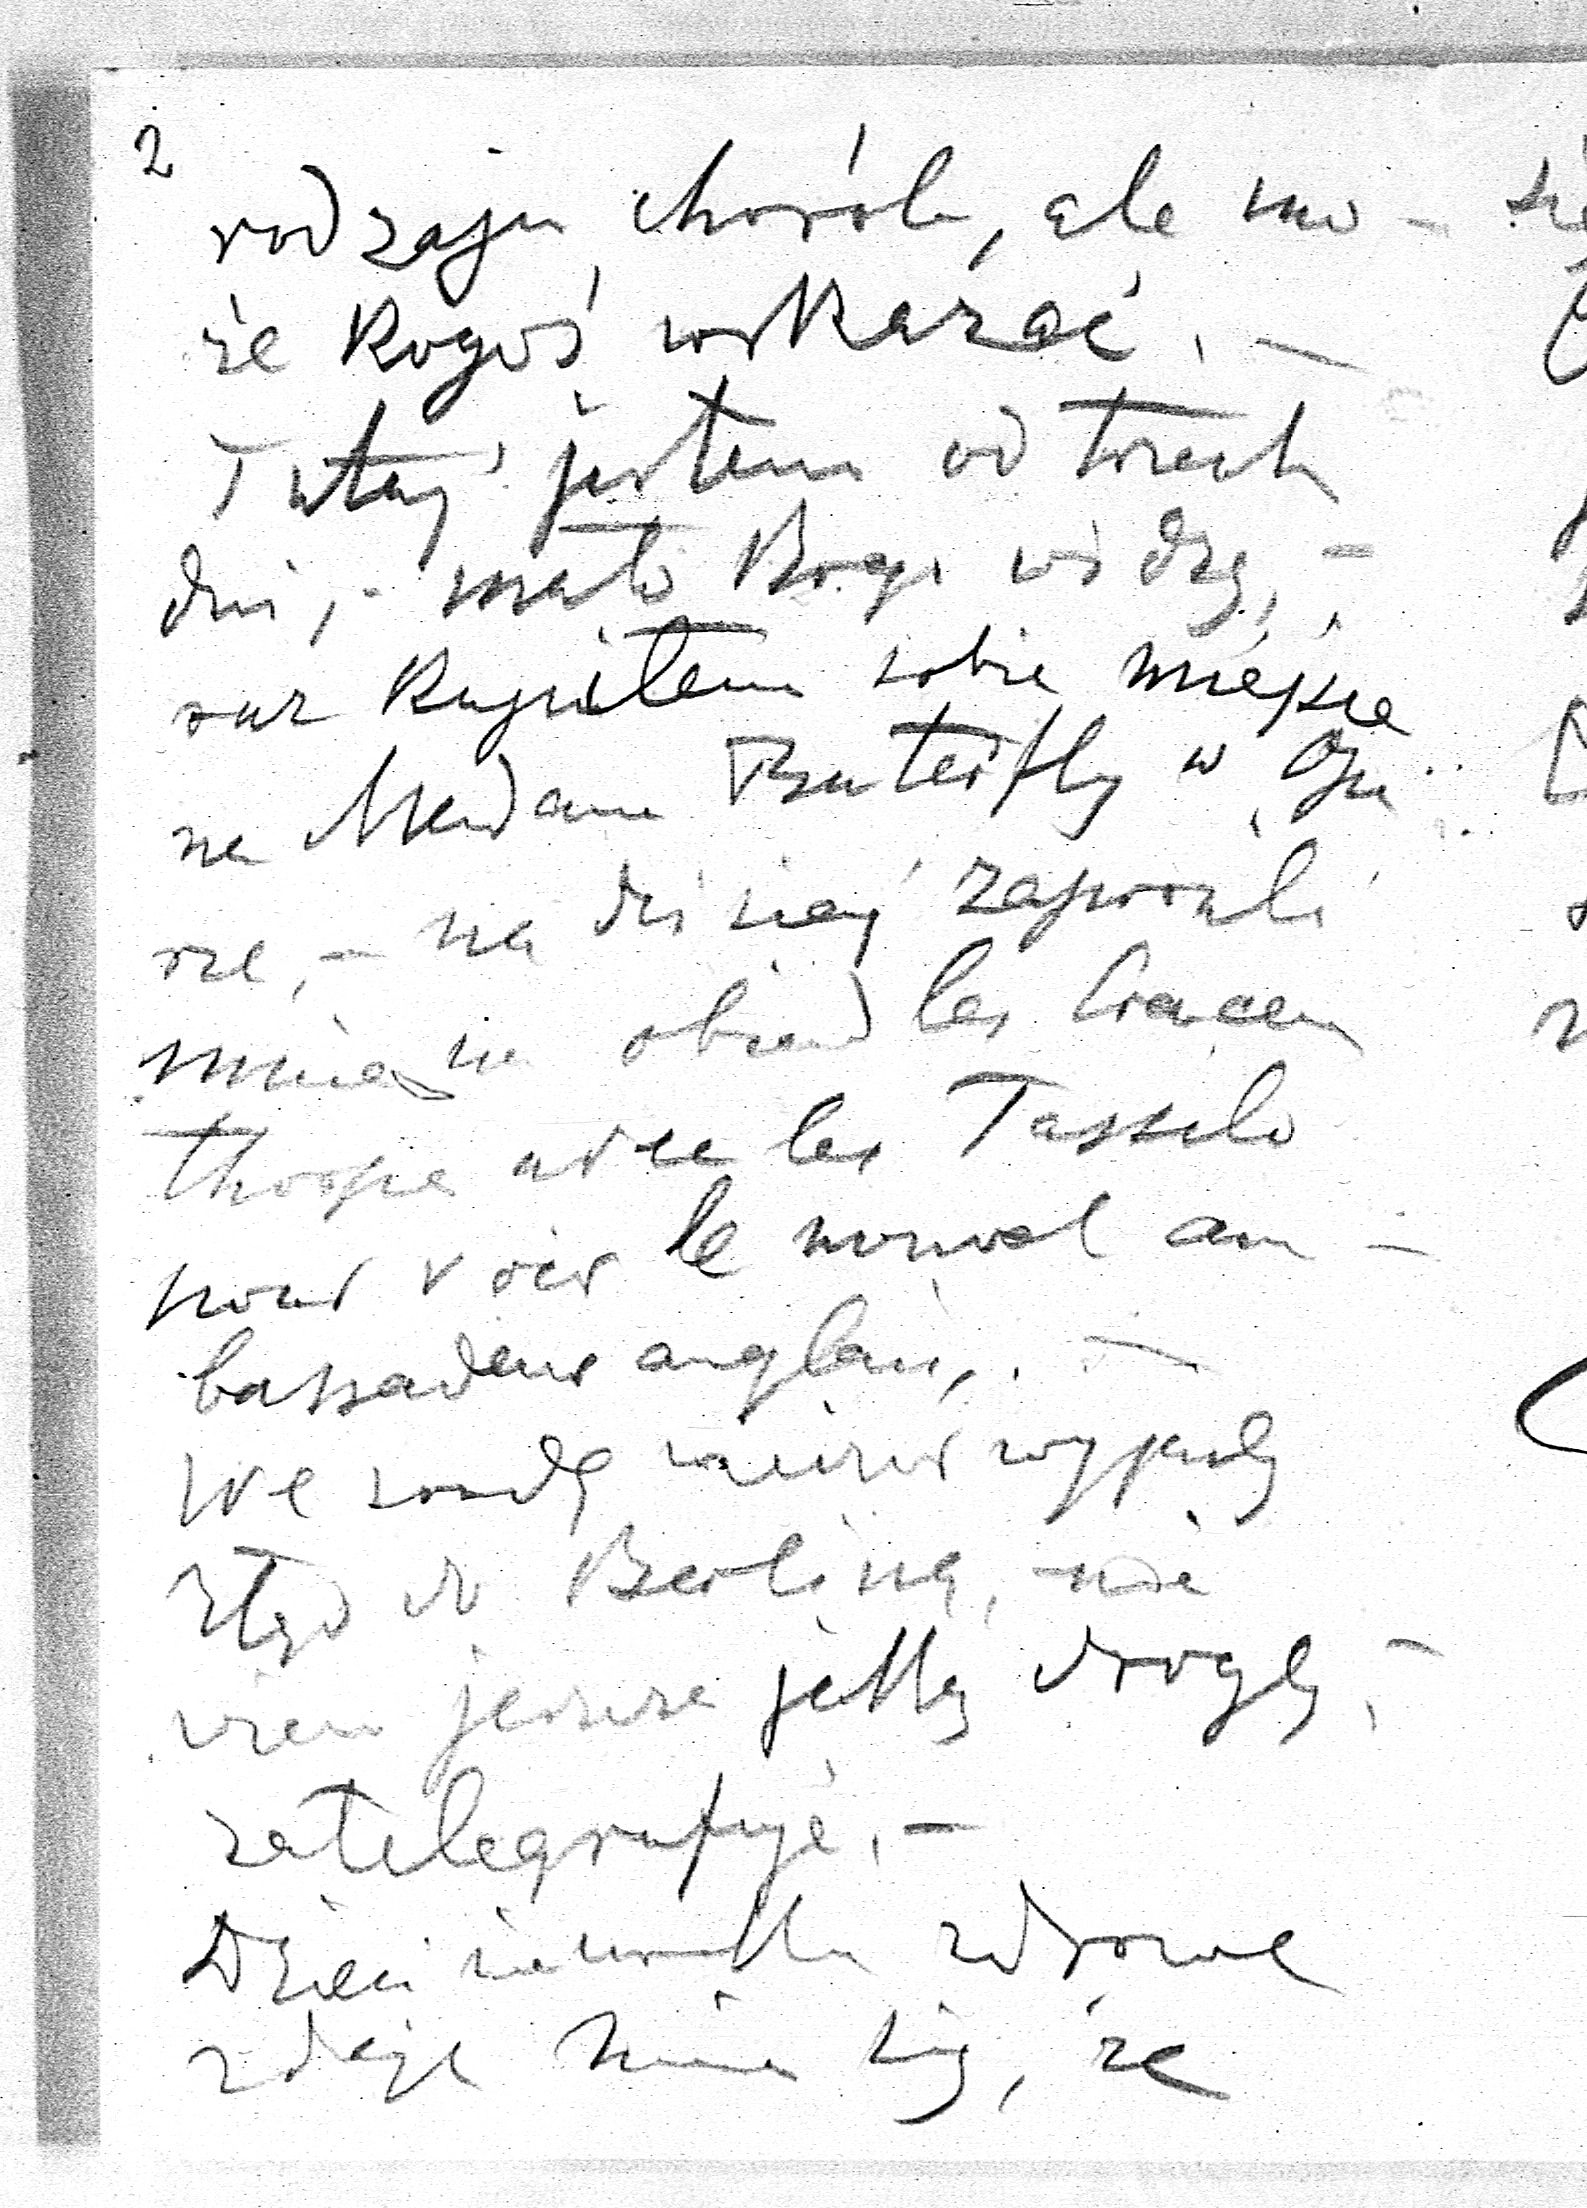 2
rodzaju chorób, ale mo-
że kogoś wskazać. —
Tutaj jestem od trzech
dni, - mało kogo widzę, -
raz kupiłem sobie miejsce
na Madame Butterfly w Ope
rze, - na dzisiaj zaprosili
mnie na obiad les
avec les Tassilo
pour voir le nouvel am -
bassadeur anglais, . —
We środę wieczór wyjadę
ztąd do Berlina, nie
wiem jeszcze jettą drogą, -
zatelegrafuję. —
Dzieci zdrowe
zdaje mi się, że